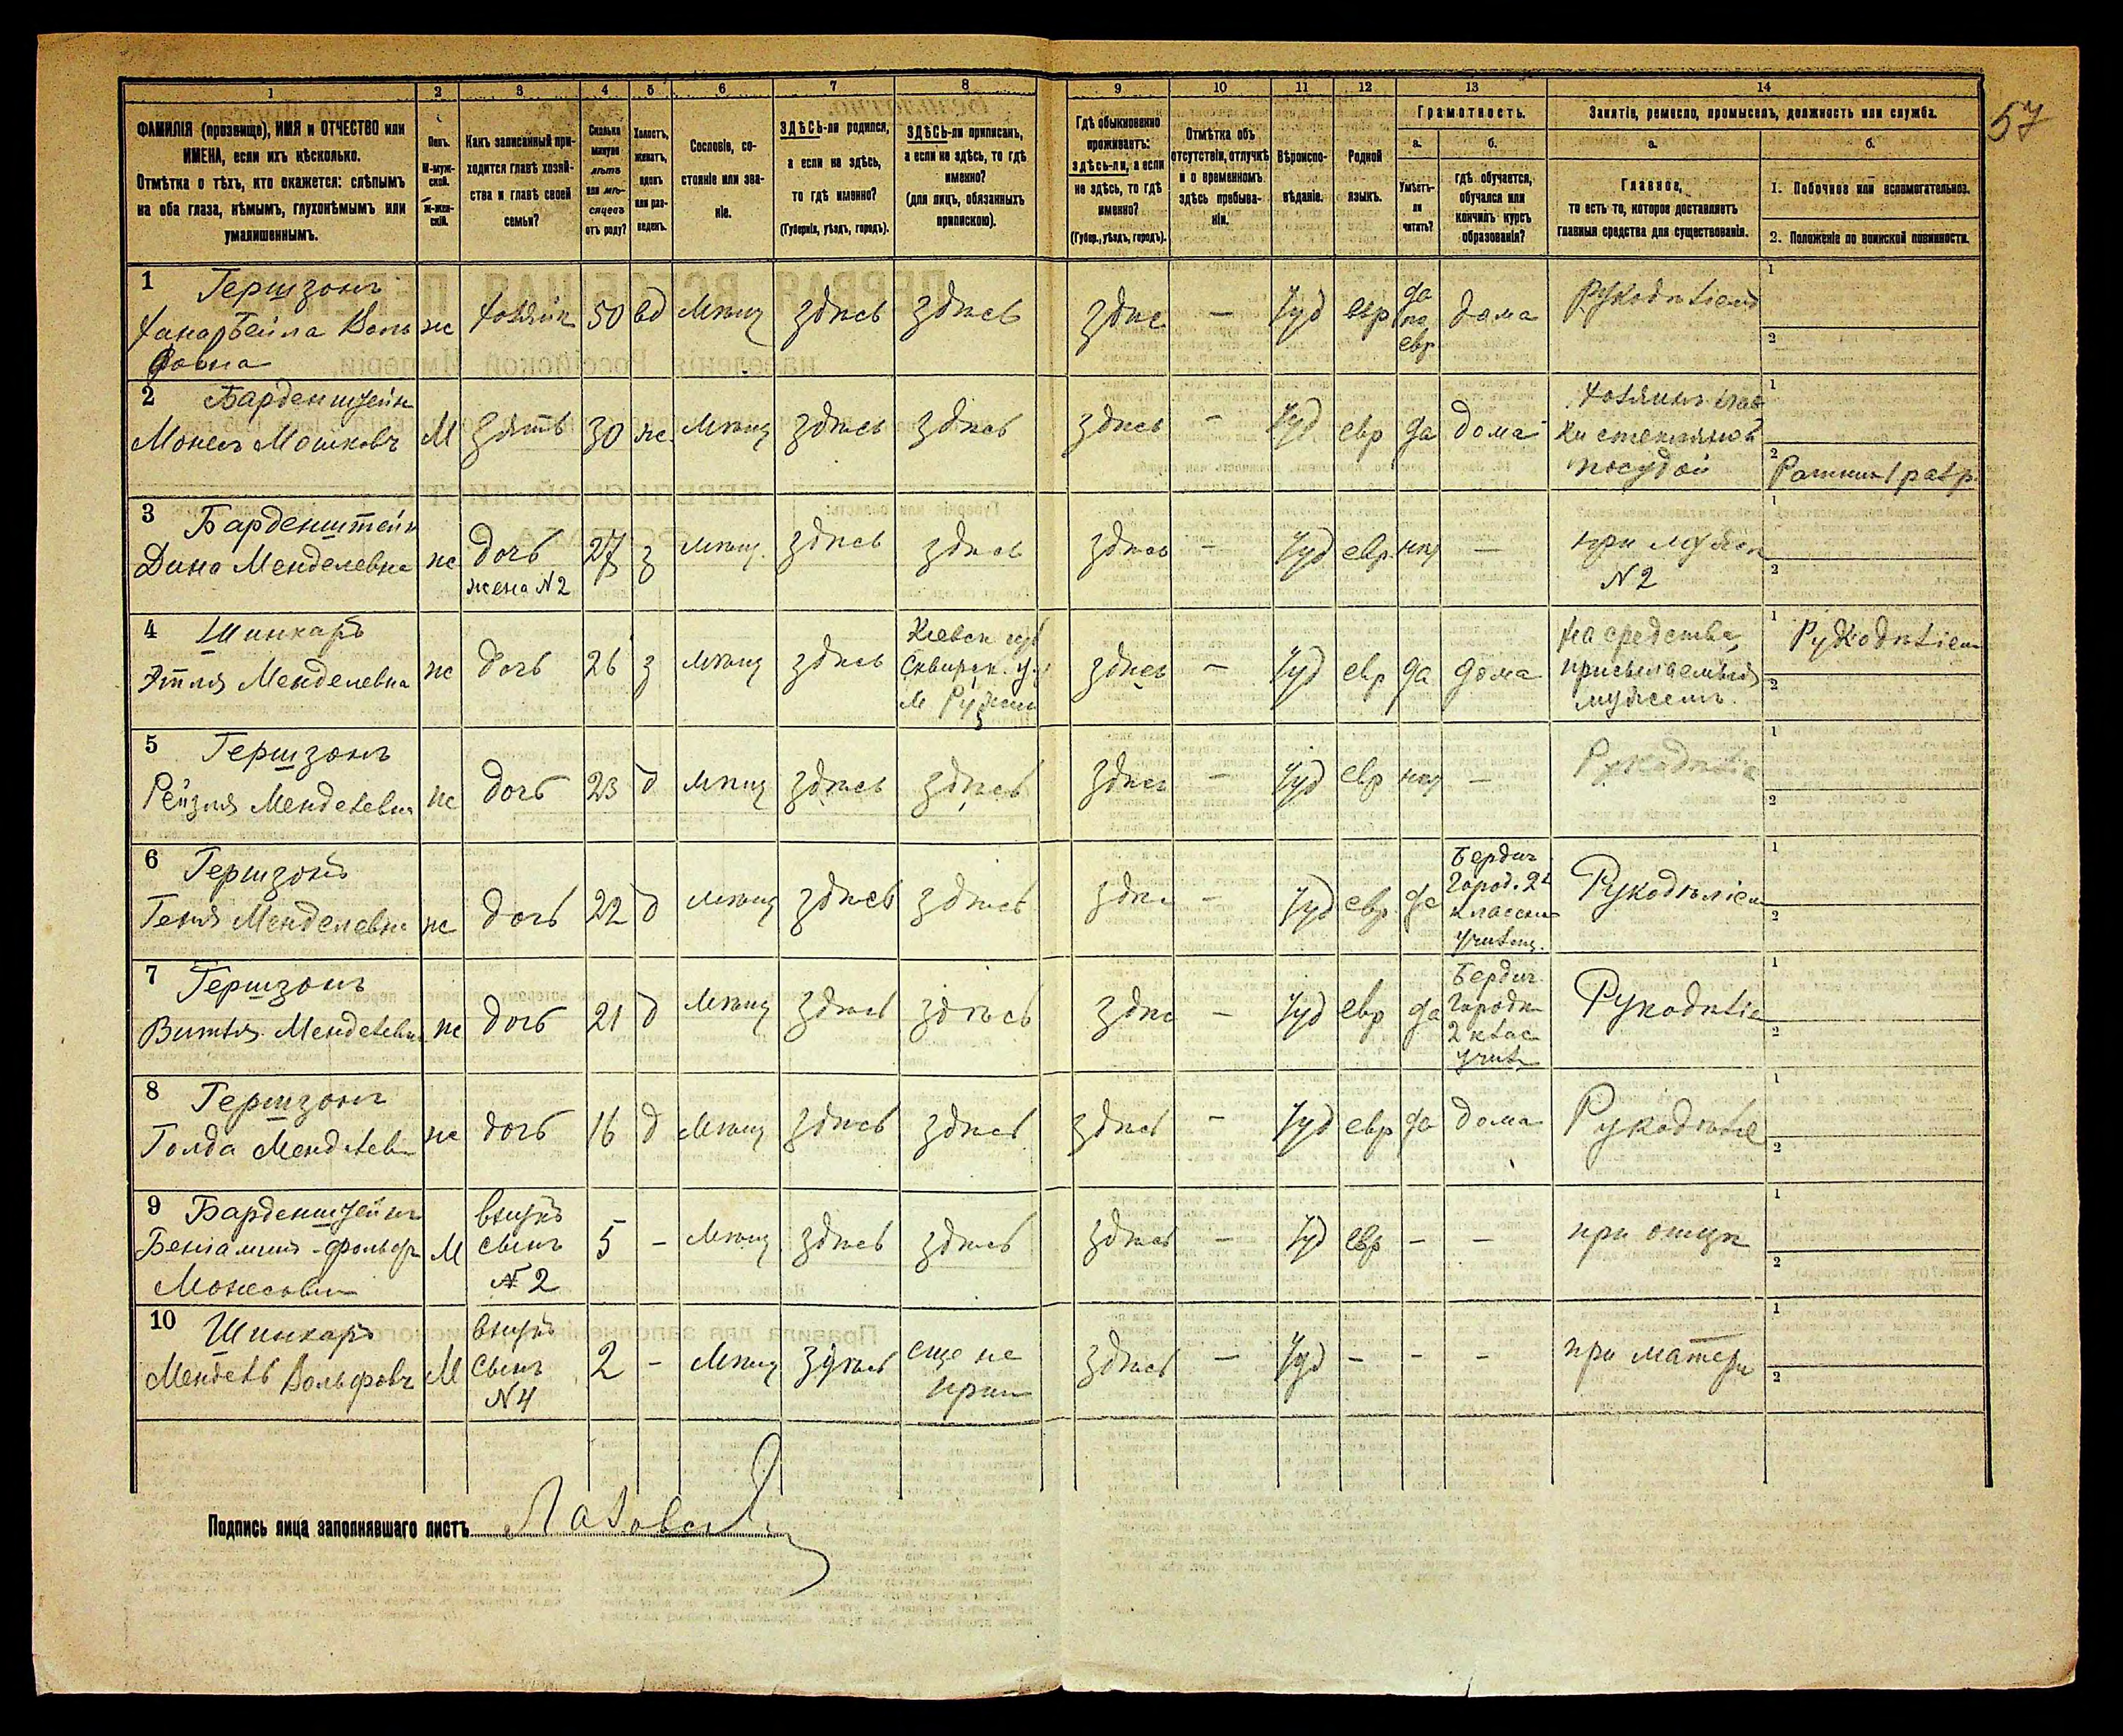 57
1 2 3 4 5 6 7 8 9 10 11 12 13 14
ФАМИЛІЯ (прозвище), ИМЯ и ОТЧЕСТВО или
ИМЕНА, если ихъ нѣсколько.
Отмѣтка о тѣхъ, кто окажется: слѣпымъ
на оба глаза, нѣмымъ, глухонѣмымъ или
умалишеннымъ.
Полъ.
М-муж-
ской.
Ж-жен-
скій.
Какъ записанный при-
ходится главѣ хозяй-
ства и главѣ своей
семьи?
Сколько
минуло
лѣтъ
или мѣ-
сяцевъ
отъ роду?
Холостъ,
женатъ,
вдовъ
или раз-
веденъ.
Сословіе, со-
стояніе или зва-
ніе.
ЗДѢСЬ-ли родился,
а если не здѣсь,
то гдѣ именно?
(Губернія, уѣздъ, городъ).
ЗДѢСЬ-ли приписанъ,
а если не здѣсь, то гдѣ
именно?
(для лицъ, обязанныхъ
припискою).
Гдѣ обыкновенно
проживаетъ:
здѣсь-ли, а если
не здѣсь, то гдѣ
именно?
(Губер., уѣздъ, городъ).
Отмѣтка объ
отсутствіи, отлучкѣ
и о временномъ
здѣсь пребыва-
ніи.
Вѣроиспо-
вѣданіе.
Родной
языкъ.
Грамотность.
а.
Умѣетъ-
ли
читать?
б.
гдѣ обучается,
обучался или
кончилъ курсъ
образованія?
Занятіе, ремесло, промыселъ, должность или служба.
а.
Главное,
то есть то, которое доставляетъ
главныя средства для существованія.
б.
1. Побочное или вспомогательное.
2. Положеніе по воинской повинности.
1 Гершзонъ
Хана Бейла Воль
фовна
ж
хозяйк
50
вд
мѣщ
здѣсь
здѣсь
здѣс
—
Іуд
евр
да
по
евр
дома
Рукодѣліем
2 Барденштейн
Монесъ Мошковъ
М
Зять
30
ж
мѣщ
здѣсь
здѣсь
здѣсь
—
Іуд
евр
да
дома
Хозяинъ лав
ки стеклянной
посудой
Ратник 1 разр.
3 Барденштейн
Дина Менделевна
ж
дочь
жена N 2
27
з
мѣщ.
здѣсь
здѣсь
здѣсь
—
Іуд
евр
нѣт
—
при мужѣ
N 2
4 Шинкарь
Этля Менделевна
ж
дочь
26
з
мѣщ
здѣсь
Кіевск губ
Сквирск. у.
м Ружин
здѣсь
—
Іуд
евр
да
дома
на средства,
присылаемыя
мужемъ.
Рукодѣліем
5 Гершзонъ
Рейзля Менделевна
ж
дочь
23
д
мѣщ
здѣсь
здѣсь
здѣсь
—
Іуд
евр
нѣт
—
Рукодѣліе
6 Гершзонъ
Геня Менделевна
ж
дочь
22
д
мѣщ
здѣсь
здѣсь
здѣс
—
Іуд
евр.
да
Бердич
Город. 2х
классн
училищ.
Рукодѣліем
7 Гершзонъ
Витля Менделевна
ж
дочь
21
д
мѣщ
здѣсь
здѣсь
здѣс
—
Іуд
евр
да
Бердич.
Городск
2 клас
учил
Рукодѣліе
8 Гершзонъ
Голда Менделев
ж
дочь
16
д
мѣщ
здѣсь
здѣсь
здѣсь
—
Іуд
евр
да
дома
Рукодѣліе
9 Барденштейнъ
Беніаминъ-Фольф
Монесовъ
М
внукъ
сынъ
N 2
5
—
мѣщ
здѣсь
здѣсь
здѣсь
—
Іуд
евр
—
—
при отцѣ
10 Шинкарь
Мендель Вольфовъ
М
внукъ
сынъ
N 4
2
—
мѣщ
здѣсь
еще не
прип
здѣсь
—
Іуд
—
—
—
при матери
Подпись лица заполнявшаго листъ